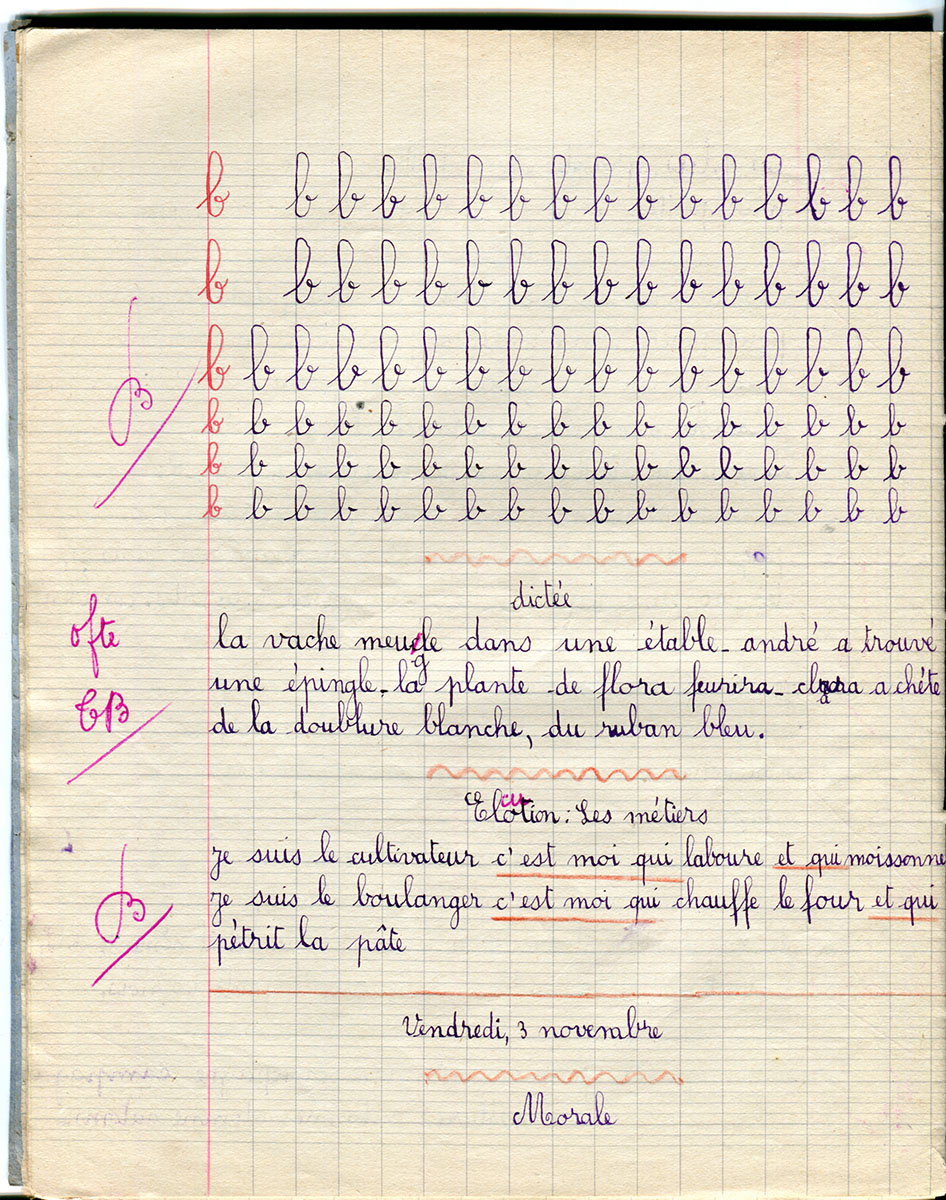 b b b b b b b b b b b b b b b b
b b b b b b b b b b b b b b b b
b b b b b b b b b b b b b b b b b
B
b b b b b b b b b b b b b b b b b
b b b b b b b b b b b b b b b b b
b b b b b b b b b b b b b b b b b
dictée
ofte
la vache meugle dans une étable_ andré a trouvé
une épingle_ la plante de flora feurira_ clara a chéte
TB
de la doublure blanche, du ruban bleu.
Elocution: Les métiers
Je suis le cultivateur c'est moi qui laboure et qui moissonne
Je suis le boulanger c'est moi qui chauffe le four et qui
B
pétrit la pâte
Vendredi, 3 novembre
Morale